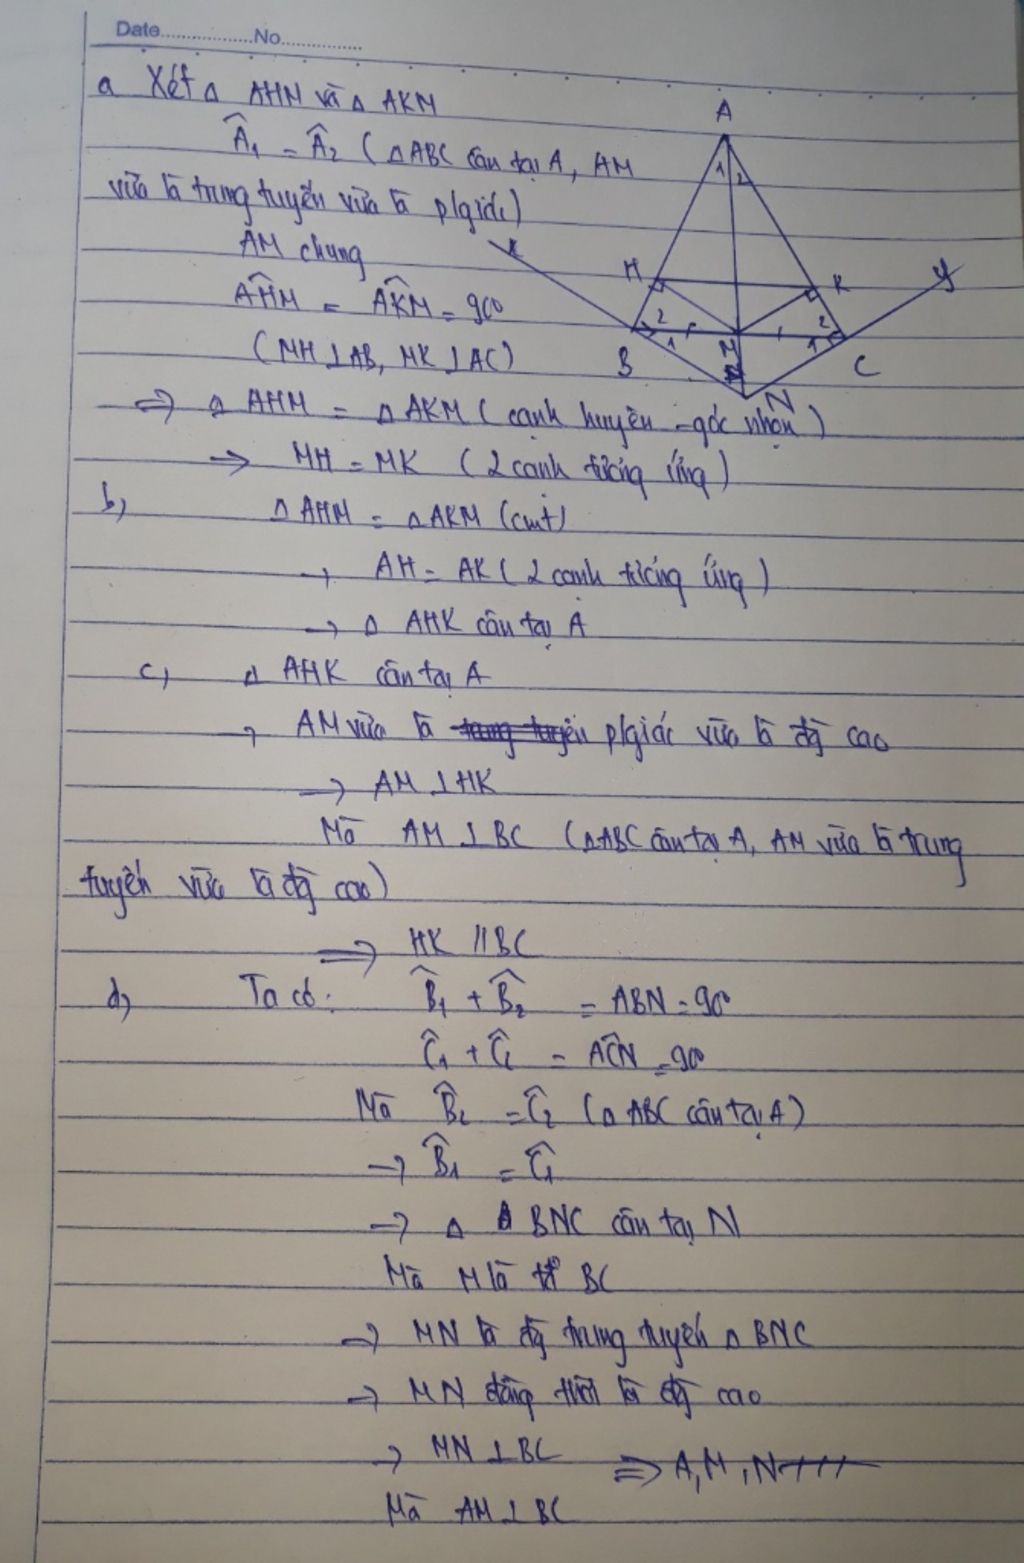 Date..................No................
a Xét △ AHM và △ AKM
Â₁ = Â₂ (△ABC cân tại A, AM
vừa là trung tuyến vừa là p/giác)
AM chung
AHM = AKM = 90°
(MH ⊥ AB, MK ⊥ AC)
=> △ AHM = △ AKM (cạnh huyền - góc nhọn)
-> MH = MK (2 cạnh tương ứng)
b, △ AHM = △ AKM (cmt)
-> AH = AK (2 cạnh tương ứng)
-> △ AHK cân tại A
c, △ AHK cân tại A
-> AM vừa là p/giác vừa là đg cao
-> AM ⊥ HK
Mà AM ⊥ BC (△ABC cân tại A, AM vừa là trung
tuyến vừa là đg cao)
=> HK // BC
d, Ta có: B̂₁ + B̂₂ = ABN = 90°
Ĉ₁ + Ĉ₂ = ACN = 90°
Mà B̂₂ = Ĉ₂ (△ ABC cân tại A)
-> B̂₁ = Ĉ₁
-> △ BNC cân tại N
Mà M là tđ BC
-> MN là đg trung tuyến △ BNC
-> MN đồng thời là đg cao
-> MN ⊥ BC => A, M, N
Mà AM ⊥ BC
A
1 2
x
H
K
y
2
1
2
1
B
M
C
N